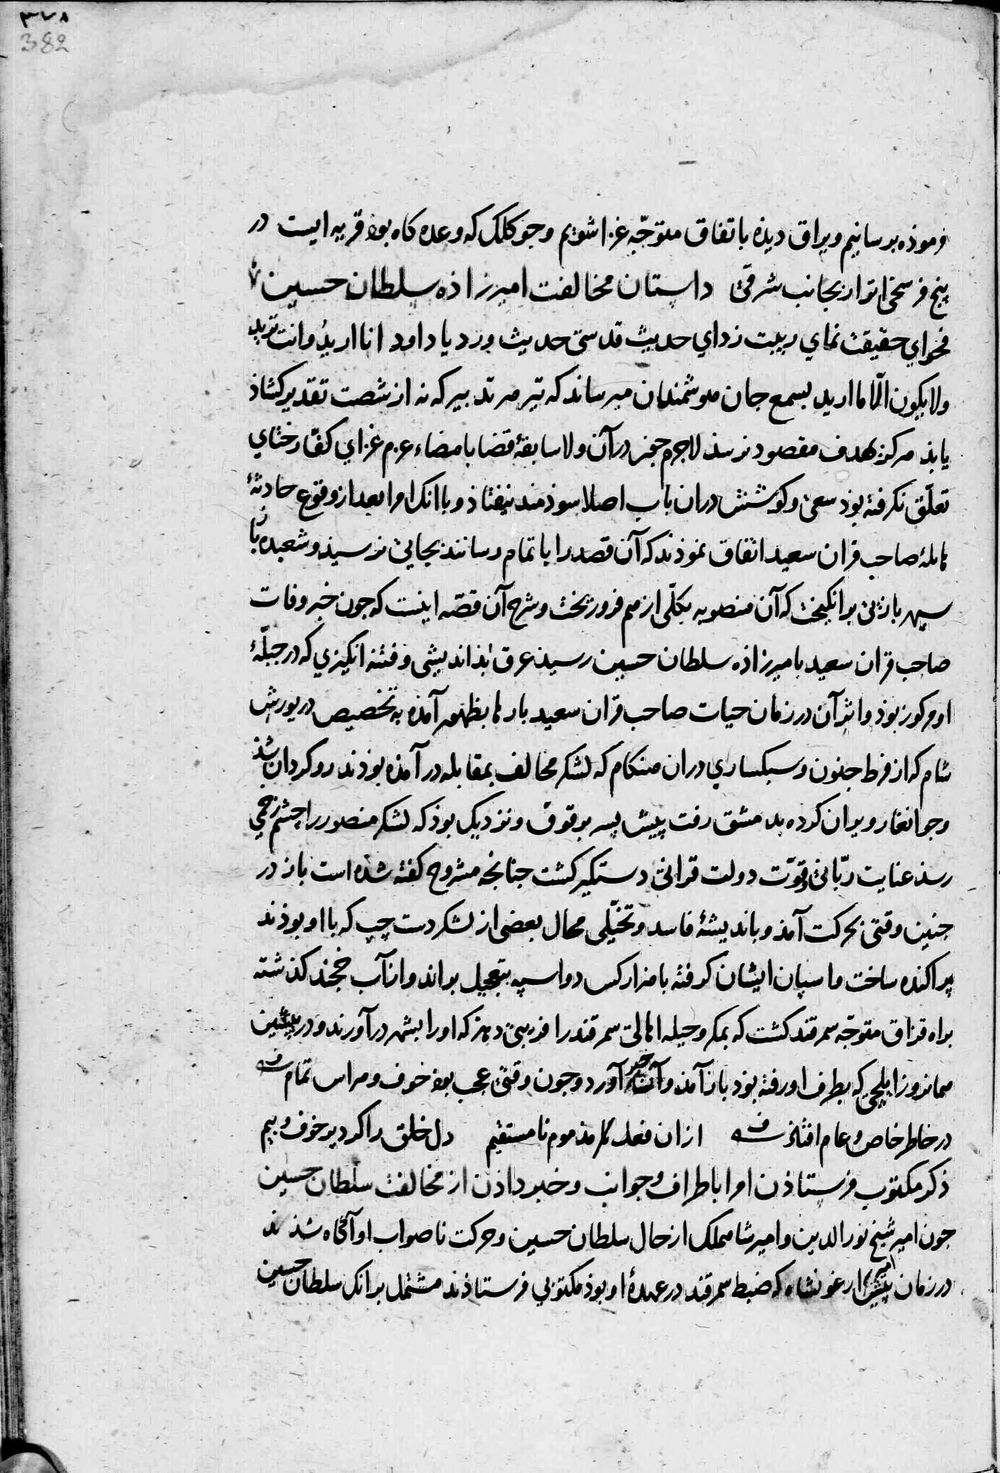 ۳۷۸
382
فرموده برسانیم ویراق دیده باتفاق متوجّه غزا شویم وجو کلک که وعده کاه بوذ قریه ایست در
پنج فرسخی اترار بجانب شرقی داستان مخالفت امیرزاذه سلطان حسین
فحوای حقیقت نمای ریبت زدای حدیث قدسی حدیث ورد یا داود انا ارید وانت ترید
ولا یکون الّا ما ارید بسمع جان هوشمندان میرساند که تیر هر تدبیر که نه از شصت تقدیر کشاذ
یابذ هرکز بهدف مقصود نرسذ لاجرم جون در آن ولا سابقهٔ قضا بامضاء عزم غزای کفّار ختای
تعلّق نکرفته بوذ سعی وکوشش دران باب اصلا سوذمند نیفتاذ وباانک امرا بعد از وقوع حادثهٔ
هایلهٔ صاحب قران سعید اتفاق نموذند که آن قصد را باتمام رسانند بجایی نرسیذ وشعبده باز
سپهر بازیی برانکیخت که آن منصوبه بکلّی از هم فرو ریخت وشرح آن قصّه اینست که جون خبر وفات
صاحب قران سعید بامیرزاذه سلطان حسین رسیذ عرق بذاندیشی وفتنه انکیزی که در جبلّهٔ
او مرکوز بوذ واثر آن در زمان حیات صاحب قران سعید بارها بظهور آمذه به تخصیص در یورش
شام که از فرط جنون وسبکساری دران هنکام که لشکر مخالف بمقابله در آمذه بوذند روکردان شذ
وجوانغار ویران کرده بدمشق رفت پیش پسر برقوق ونزدیک بوذ که لشکر منصور را جشم زخمی
رسذ عنایت ربّانی وقوّت دولت قرانی دستکیر کشت جنانجه مشروح کفته شذه است باز در
جنین وقتی بحرکت آمذ وباندیشهٔ فاسد وتخیّلی محال بعضی از لشکر دست جپ که با او بوذند
پراکنده ساخت واسپان ایشان کرفته با هزار کس دواسپه بتعجیل براند واز آب خجند کذشته
براه قزاق متوجّه سمرقند کشت که بمکر وحیله اهالی سمرقند را فریبی دهذ که اورا بشهر در آورند ودر پیشین
همانروز ایلچی که بطرف او رفته بوذ باز آمذ وآن خبر آورد وجون وقتی عجب بوذ خوف وهراس تمام
در خاطر خاص وعام افتاذ ازان فعلهای مذموم نامستقیم دل خلق را کرد پرخوف وبیم
ذکر مکتوب فرستاذن امرا باطراف وجوانب وخبر داذن از مخالفت سلطان حسین
جون امیر شیخ نور الدین وامیر شاهملک از حال سلطان حسین وحرکت ناصواب او آکاه شذند
در زمان پیش امیر ارغونشاه که ضبط سمرقند در عهدهٔ او بوذ مکتوبی فرستاذند مشتمل برانک سلطان حسین